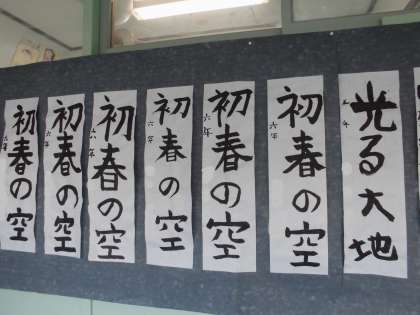 光る大地
五年
初春の空
六年
初春の空
六年
初春の空
六年
初春の空
六年
初春の空
六年
初春の空
六年